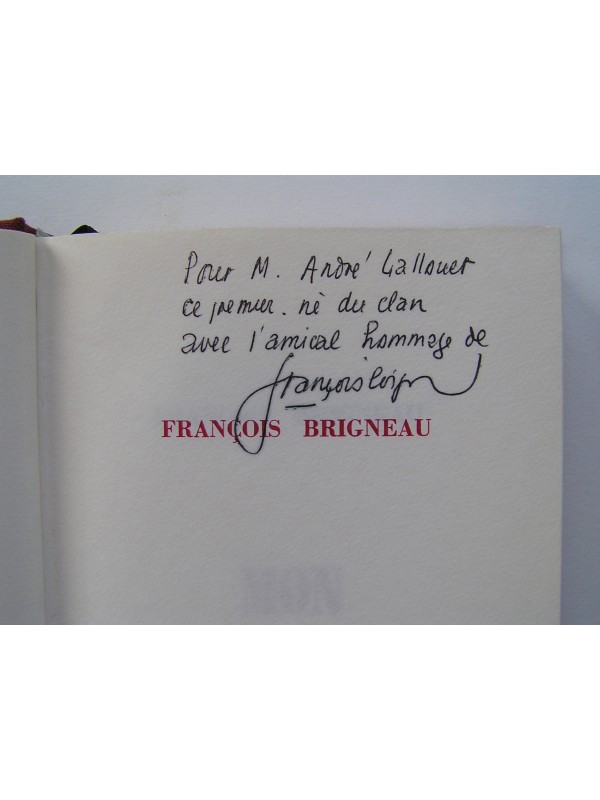 Pour M. André Gallouet
ce premier. né du clan
avec l'amical hommage de
François Brigneau
FRANÇOIS BRIGNEAU
MON